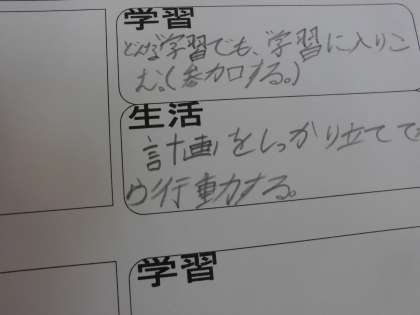 学習
どんな学習でも、学習に入りこ
む。(参加する。)
生活
計画をしっかり立てて
行動する。
学習